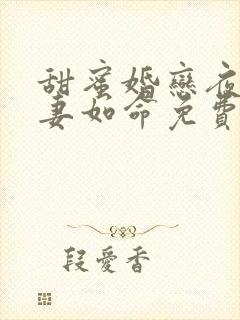 甜蜜婚戀夜
妻如命免費
段愛香